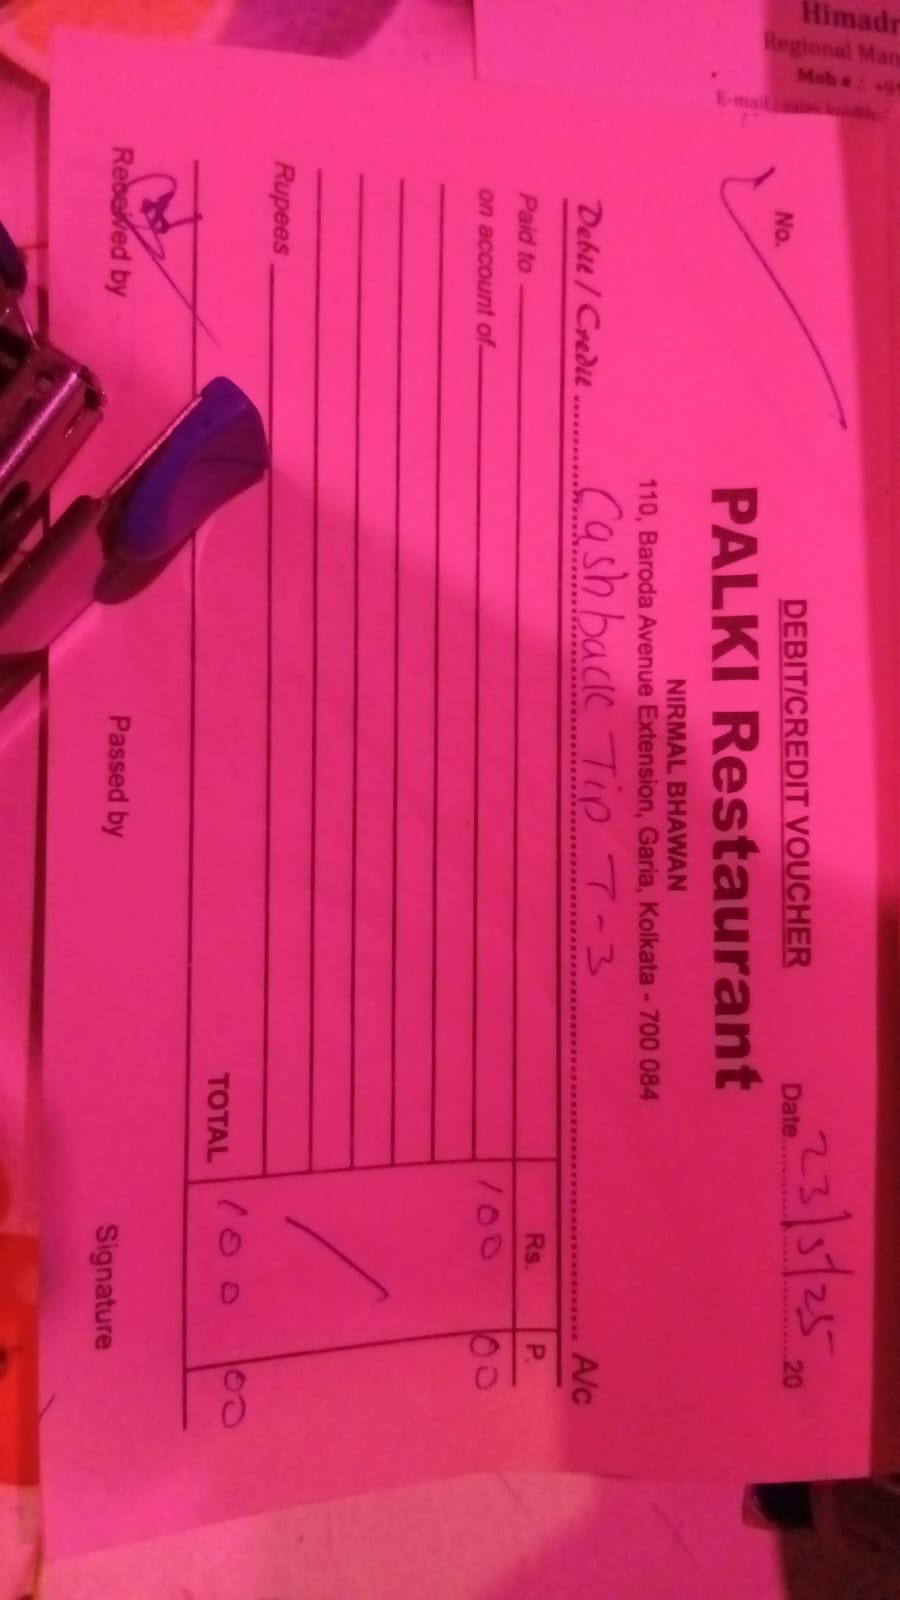 Himadr
Regional Man
Mob # : +9
E-mail :
No.
DEBIT/CREDIT VOUCHER
Date 23/5/25 20
PALKI Restaurant
NIRMAL BHAWAN
110, Baroda Avenue Extension, Garia, Kolkata - 700 084
Debit / Credit Cash back Tip T-3 A/c
Paid to Rs. P.
on account of 100 00
Rupees
TOTAL 100 00
Received by Passed by Signature